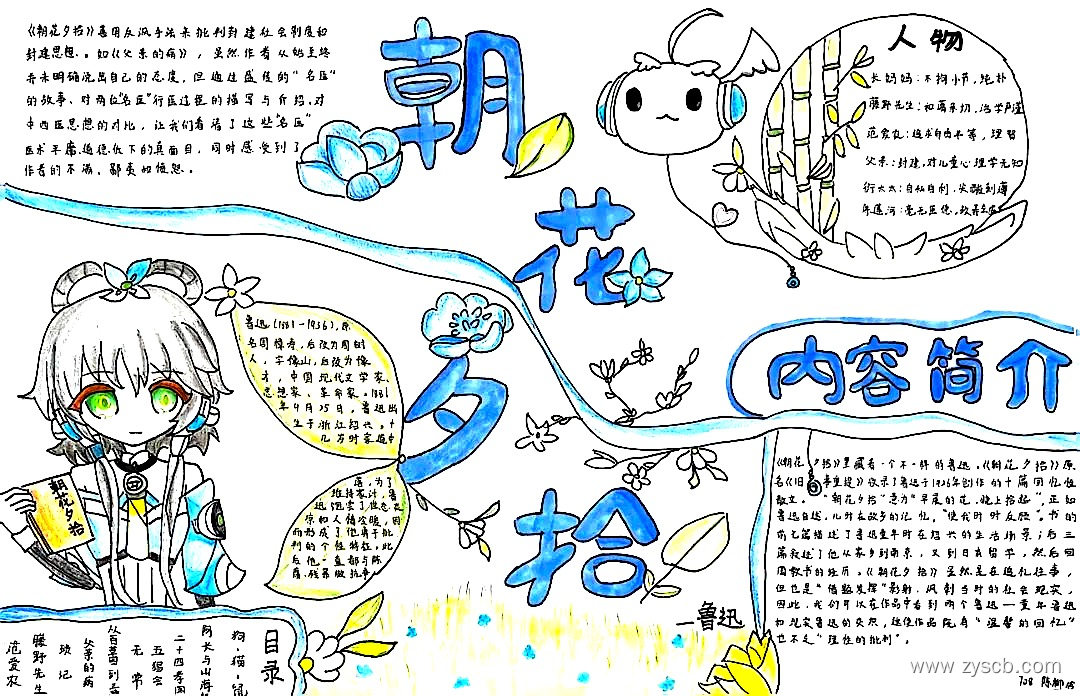 《朝花夕拾》善用反讽手法来批判封建社会制度和
封建思想。如《父亲的病》，虽然作者从始至终
并未明确说出自己的态度，但通过盛传的“名医”
的故事、对两位“名医”行医过程的描写与介绍，对
中西医思想的对比，让我们看清了这些“名医”
医术平庸、道德低下的真面目，同时感受到了
作者的不满、鄙夷和愤怒。
朝
花
夕
拾
—鲁迅
人物
长妈妈：不拘小节，纯朴
藤野先生：和蔼亲切，治学严谨
范爱农：追求自由平等，理智
父亲：封建，对儿童心理学无知
衍太太：自私自利，尖酸刻薄
陈莲河：毫无医德，
鲁迅（1881-1936），原
名周樟寿，后改为周树
人，字豫山，后改为豫
才，中国现代文学家、
思想家、革命家。1881
年9月25日，鲁迅出
生于浙江绍兴。十
几岁时家道中
落，为了
维持家计，鲁
迅饱尝了世态炎
凉和人情冷暖，因
而形成了他勇于批
判的个性特征，此
后他一直都与陈
腐、残暴做抗争。
朝花夕拾
内容简介
《朝花夕拾》里藏着一个不一样的鲁迅。《朝花夕拾》原
名《旧事重提》收录了鲁迅于1926年创作的十篇回忆性
散文。“朝花夕拾”意为“早晨的花，晚上拾起”，正如
鲁迅自述，儿时在故乡的记忆，“使我时时反顾”。书的
前七篇描述了鲁迅童年时在绍兴的生活场景；后三
篇叙述了他从家乡到南京，又到日本留学，然后回
国教书的经历。《朝花夕拾》虽然是在追忆往事，
但也是“借题发挥”影射、讽刺当时的社会现实，
因此，我们可以在作品中看到两个鲁迅—童年鲁迅
和现实鲁迅的交织，这使作品既有“温馨的回忆”
也不乏“理性的批判”。
目录
狗·猫·鼠
阿长与山海经
二十四孝图
五猖会
无常
从百草园到三
父亲的病
琐记
藤野先生
范爱农
www.zyscb.com
708 陈